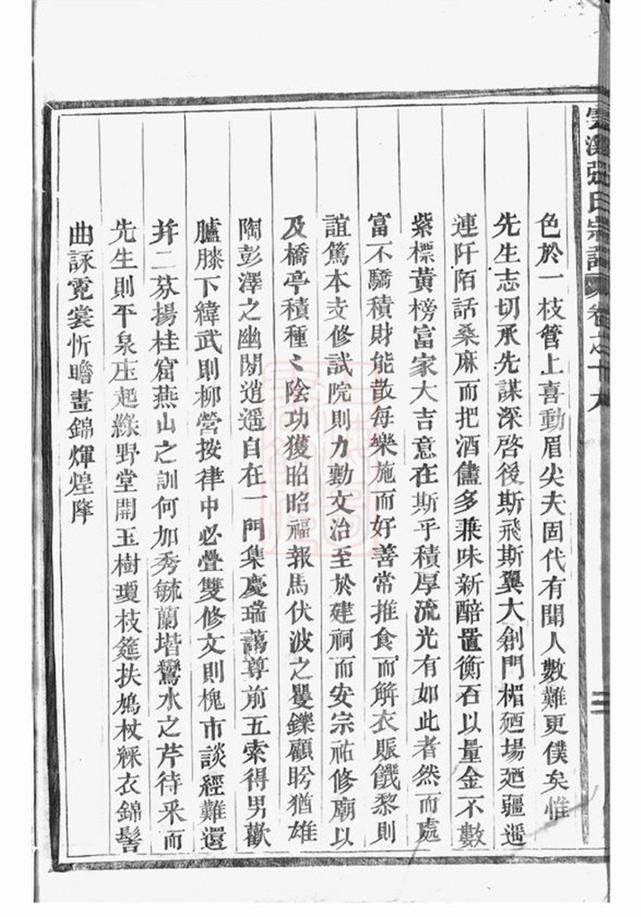 雲 張氏宗譜 卷之十九
三
色於一枝管上喜動眉尖夫固代有聞人數難更僕矣惟
先生志切承先謀深啓後斯飛斯翼大創門楣廼場廼疆遥
連阡陌話桑麻而把酒儘多兼味新醅置衡石以量金不數
紫標黃榜富家大吉意在斯乎積厚流光有如此者然而處
富不驕積財能散每樂施而好善常推食而解衣賑餓黎則
誼篤本支修試院則力勷文治至於建祠而安宗祐修廟以
及橋亭積種〻陰功獲昭昭福報馬伏波之矍鑠顧盼猶雄
陶彭澤之幽閒逍遥自在一門集慶瑞藹尊前五索得男歡
臚膝下緯武則柳營按律中必疊雙修文則槐市談經難還
幷二芬揚桂窟燕山之訓何加秀毓蘭堦鷟水之芹待采而
先生則平泉庄起綠野堂開玉樹瓊枝筵扶鳩杖綵衣錦髻
曲詠霓裳忻瞻畫錦輝煌犀